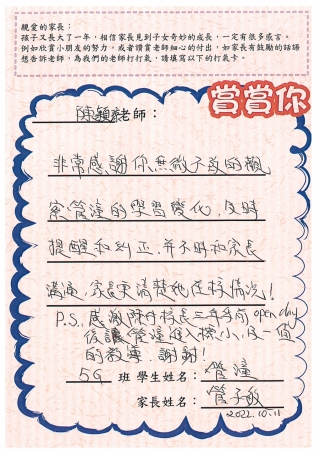 親愛的家長：
孩子又長大了一年，相信家長見到子女奇妙的成長，一定有很多感言。
例如欣賞小朋友的努力，或者讚賞老師細心的付出，如家長有鼓勵的話語
想告訴老師，為我們的老師打打氣，請填寫以下的打氣卡。
賞賞你
陳穎老師：
非常感謝你無微不至的觀
察管潼的學習變化，及時
提醒和糾正，并不時和家長
溝通，家長更清楚她在校情況！
P.S. 感謝陳校長三年前 open day
後讓管潼進入樓小，及一直
的教導，謝謝！
5G 班 學生姓名：管潼
家長姓名：管子敏
2022.10.11